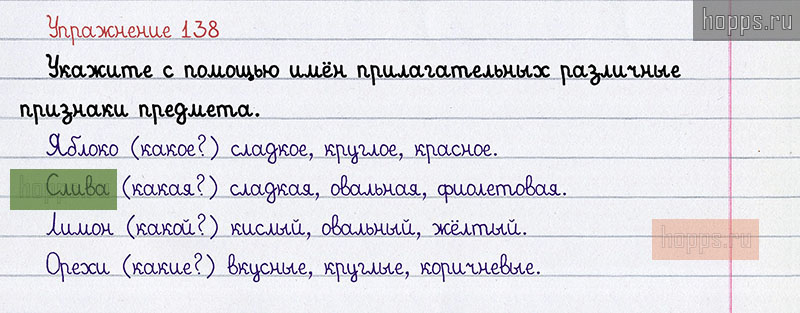 Упражнение 138
hopps.ru
Укажите с помощью имён прилагательных различные
признаки предмета.
Яблоко (какое?) сладкое, круглое, красное.
Слива (какая?) сладкая, овальная, фиолетовая.
Лимон (какой?) кислый, овальный, жёлтый.
hopps.ru
Орехи (какие?) вкусные, круглые, коричневые.